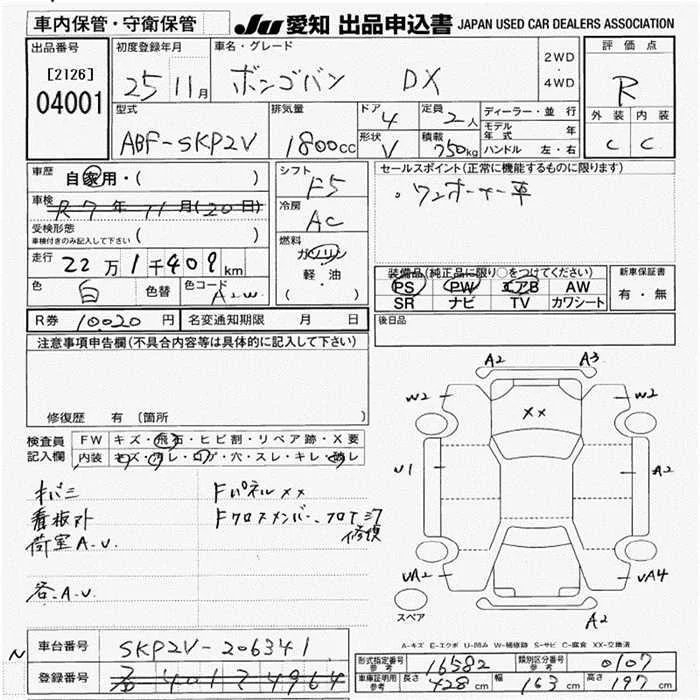 車内保管・守衛保管
JU 愛知 出品申込書 JAPAN USED CAR DEALERS ASSOCIATION
出品番号
[2126]
04001
初度登録年月
25 11月
車名・グレード
ボンゴバン DX
2WD
・
4WD
評価点
R
外装 内装
C C
型式
ABF-SKP2V
排気量
1800cc
ドア 4
形状 V
定員 2人
積載 750kg
ディーラー・並行
モデル年式 年
ハンドル 左・右
車歴
自家用・( )
車検
R7年11月(20日)
受検形態
車検付きのみ記入して下さい ( )
走行
22万1千409km
色 白 色替 色コード A2W
シフト
F5
冷房
AC
燃料
ガソリン
軽・油
( )
セールスポイント(正常に機能するものに限ります)
。ワンオーナー車
装備品(純正品に限り○をつけてください)
PS PW エアB AW
SR ナビ TV カワシート
新車保証書
有・無
R券 10020円 名変通知期限 月 日
後日品
注意事項申告欄(不具合内容等は具体的に記入して下さい)
修復歴 有〔箇所
検査員
記入欄
FW キズ・飛石・ヒビ割・リペア跡・X要
内装 キズ・汚レ・コゲ・穴・スレ・キレ・破レ
看板外
荷室A.U.
各.A.U.
Fパネルxx
Fクロスメンバー、フロア
修復
A2 A3
W2 W2
XX
U1 A2
UA2 UA4
スペア
A2
A-キズ E-エクボ U-凹み W-補修跡 S-サビ C-腐食 XX-交換済
N
車台番号 SKP2V-206341
登録番号
形式指定番号
参考
16582
類別区分番号
参考
0107
車庫証明用
参考
長さ 428cm 幅 163cm 高さ 197cm